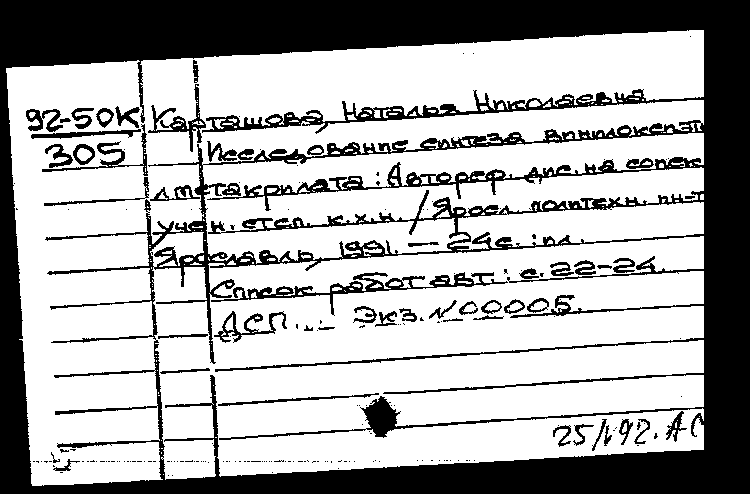 92-50К Карташова, Наталья Николаевна
305 Исследование синтеза винилоксиэти
лметакрилата : Автореф. дис. на соиск
учен. степ. к.х.н. / Яросл. политехн. ин-т
Ярославль, 1991. — 24 с. : ил.
Список работ авт. : с. 22-24.
ДСП. — Экз. N 00005.
25/1-92. АС